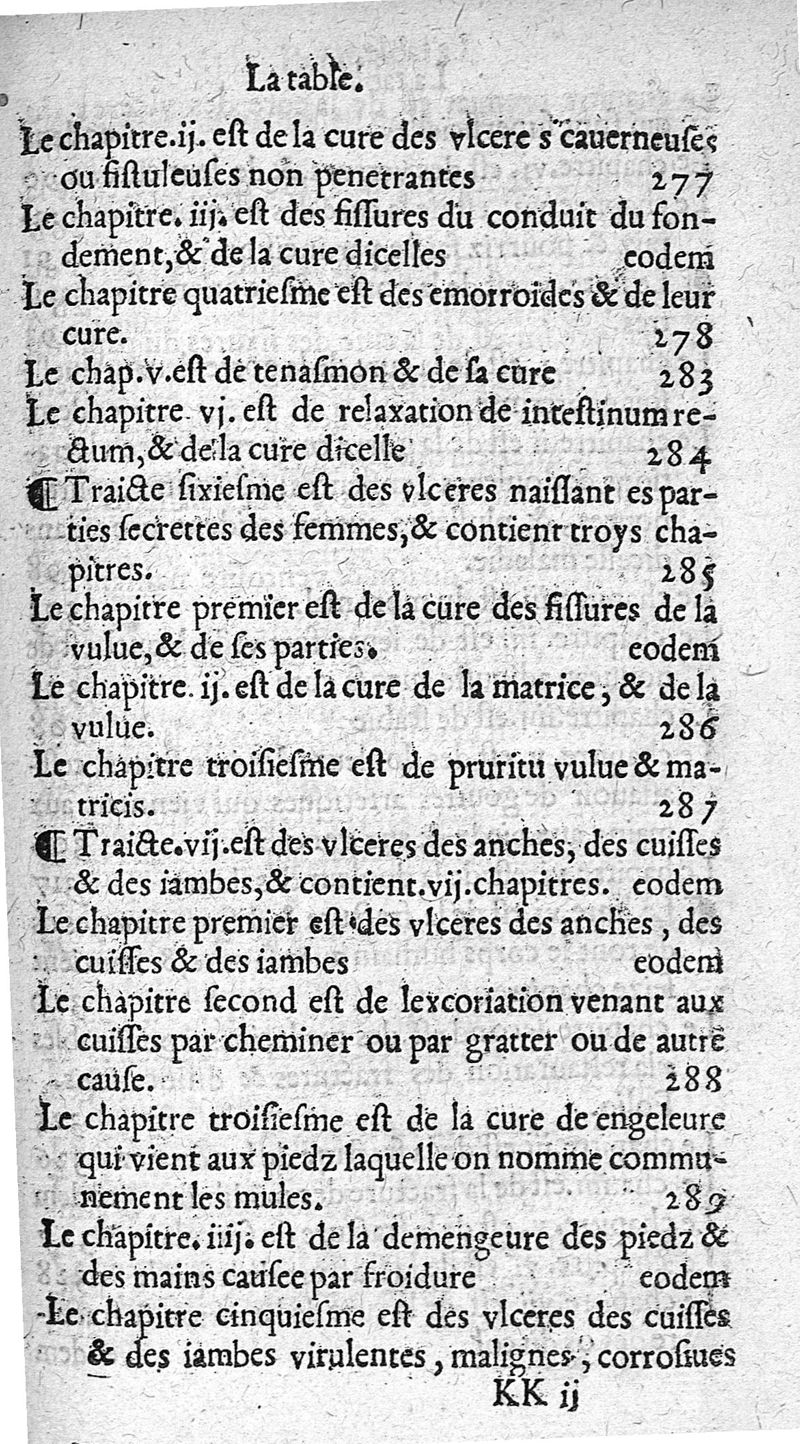 La table.
Le chapitre.ij. eſt de la cure des vlcere s cauerneuſes
ou fiſtuleuſes non penetrantes 277
Le chapitre. iij. eſt des fiſſures du conduit du fon-
dement,& de la cure dicelles eodem
Le chapitre quatrieſme eſt des emorroides & de leur
cure. 278
Le chap.v.eſt de tenaſmon & de ſa cure 283
Le chapitre vj. eſt de relaxation de inteſtinum re-
ctum,& de la cure dicelle 284
¶ Traicte ſixieſme eſt des vlceres naiſſant es par-
ties ſecrettes des femmes,& contient troys cha-
pitres. 285
Le chapitre premier eſt de la cure des fiſſures de la
vulue,& de ſes parties. eodem
Le chapitre. ij. eſt de la cure de la matrice, & de la
vulue. 286
Le chapitre troiſieſme eſt de pruritu vulue & ma-
tricis. 287
¶ Traicte.vij.eſt des vlceres des anches, des cuiſſes
& des iambes,& contient.vij.chapitres. eodem
Le chapitre premier eſt des vlceres des anches, des
cuiſſes & des iambes eodem
Le chapitre ſecond eſt de lexcoriation venant aux
cuiſſes par cheminer ou par gratter ou de autre
cauſe. 288
Le chapitre troiſieſme eſt de la cure de engeleure
qui vient aux piedz laquelle on nomme commu-
nement les mules. 289
Le chapitre. iiij. eſt de la demengeure des piedz &
des mains cauſee par froidure eodem
Le chapitre cinquieſme eſt des vlceres des cuiſſes
& des iambes virulentes, malignes, corroſiues
KK ij